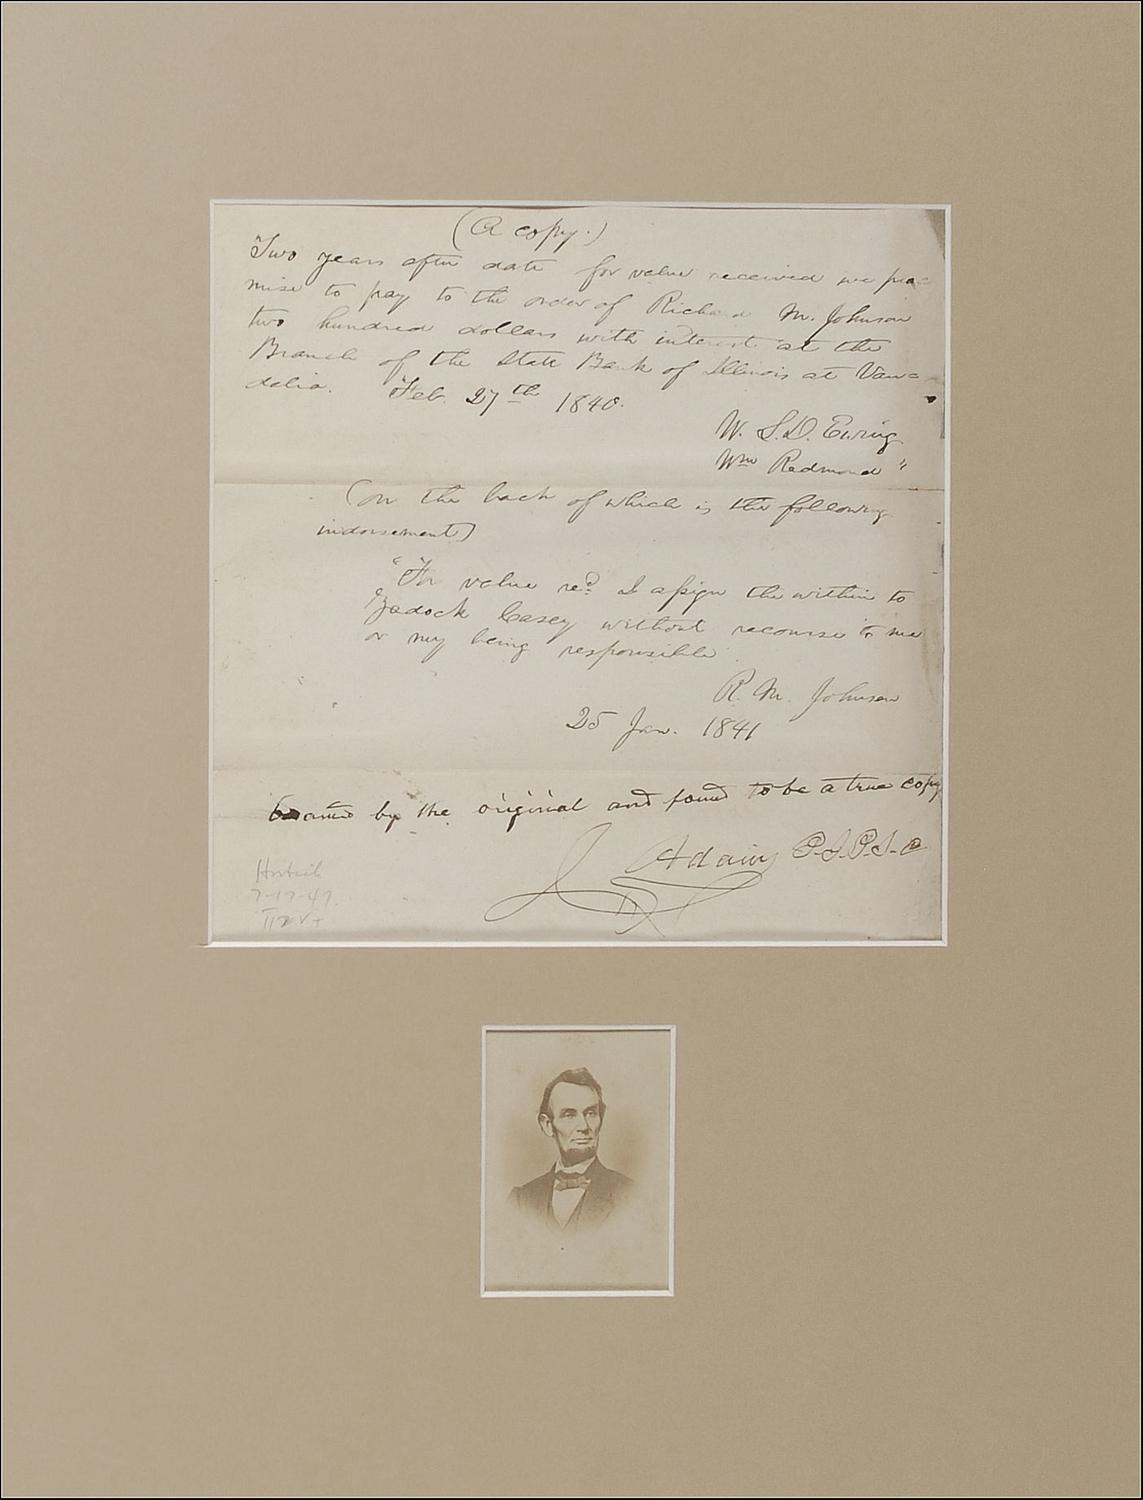 (A copy.)
Two years after date for value received we pro=
mise to pay to the order of Richard M. Johnson
two hundred dollars with interest at the
Branch of the State Bank of Illinois at Van=
dalia. Feb. 27th 1840.
W. L. D. Ewing
Wm Redmond "
(on the back of which is the following
indorsement)
"For value recd I assign the within to
Zadock Casey without recourse to me
or my being responsible
R. M. Johnson
25 Jan. 1841
by the original and found to be a true copy
J Adams P.J.P.S.C
7-17-47